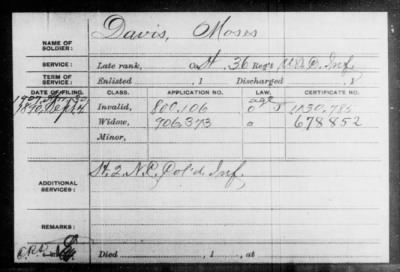 Davis, Moses
NAME OF SOLDIER:
SERVICE: Late rank, Co. H, 36 Reg't U.S.C. Inf.
TERM OF SERVICE: Enlisted , 1 Discharged , 1
DATE OF FILING. CLASS. APPLICATION NO. LAW. CERTIFICATE NO.
1907
age
Invalid, 800,106 1130,785
1890 Sept 4 Widow, 906,373 678852
Minor,
ADDITIONAL SERVICES: H. 2 N.C. Col'd Inf.
REMARKS:
Died , 1 , at